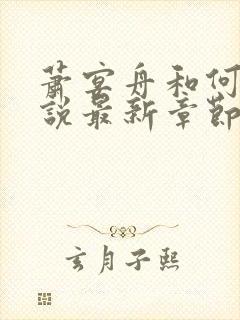 蕭宴舟和何
說最新章節
玄月子熙